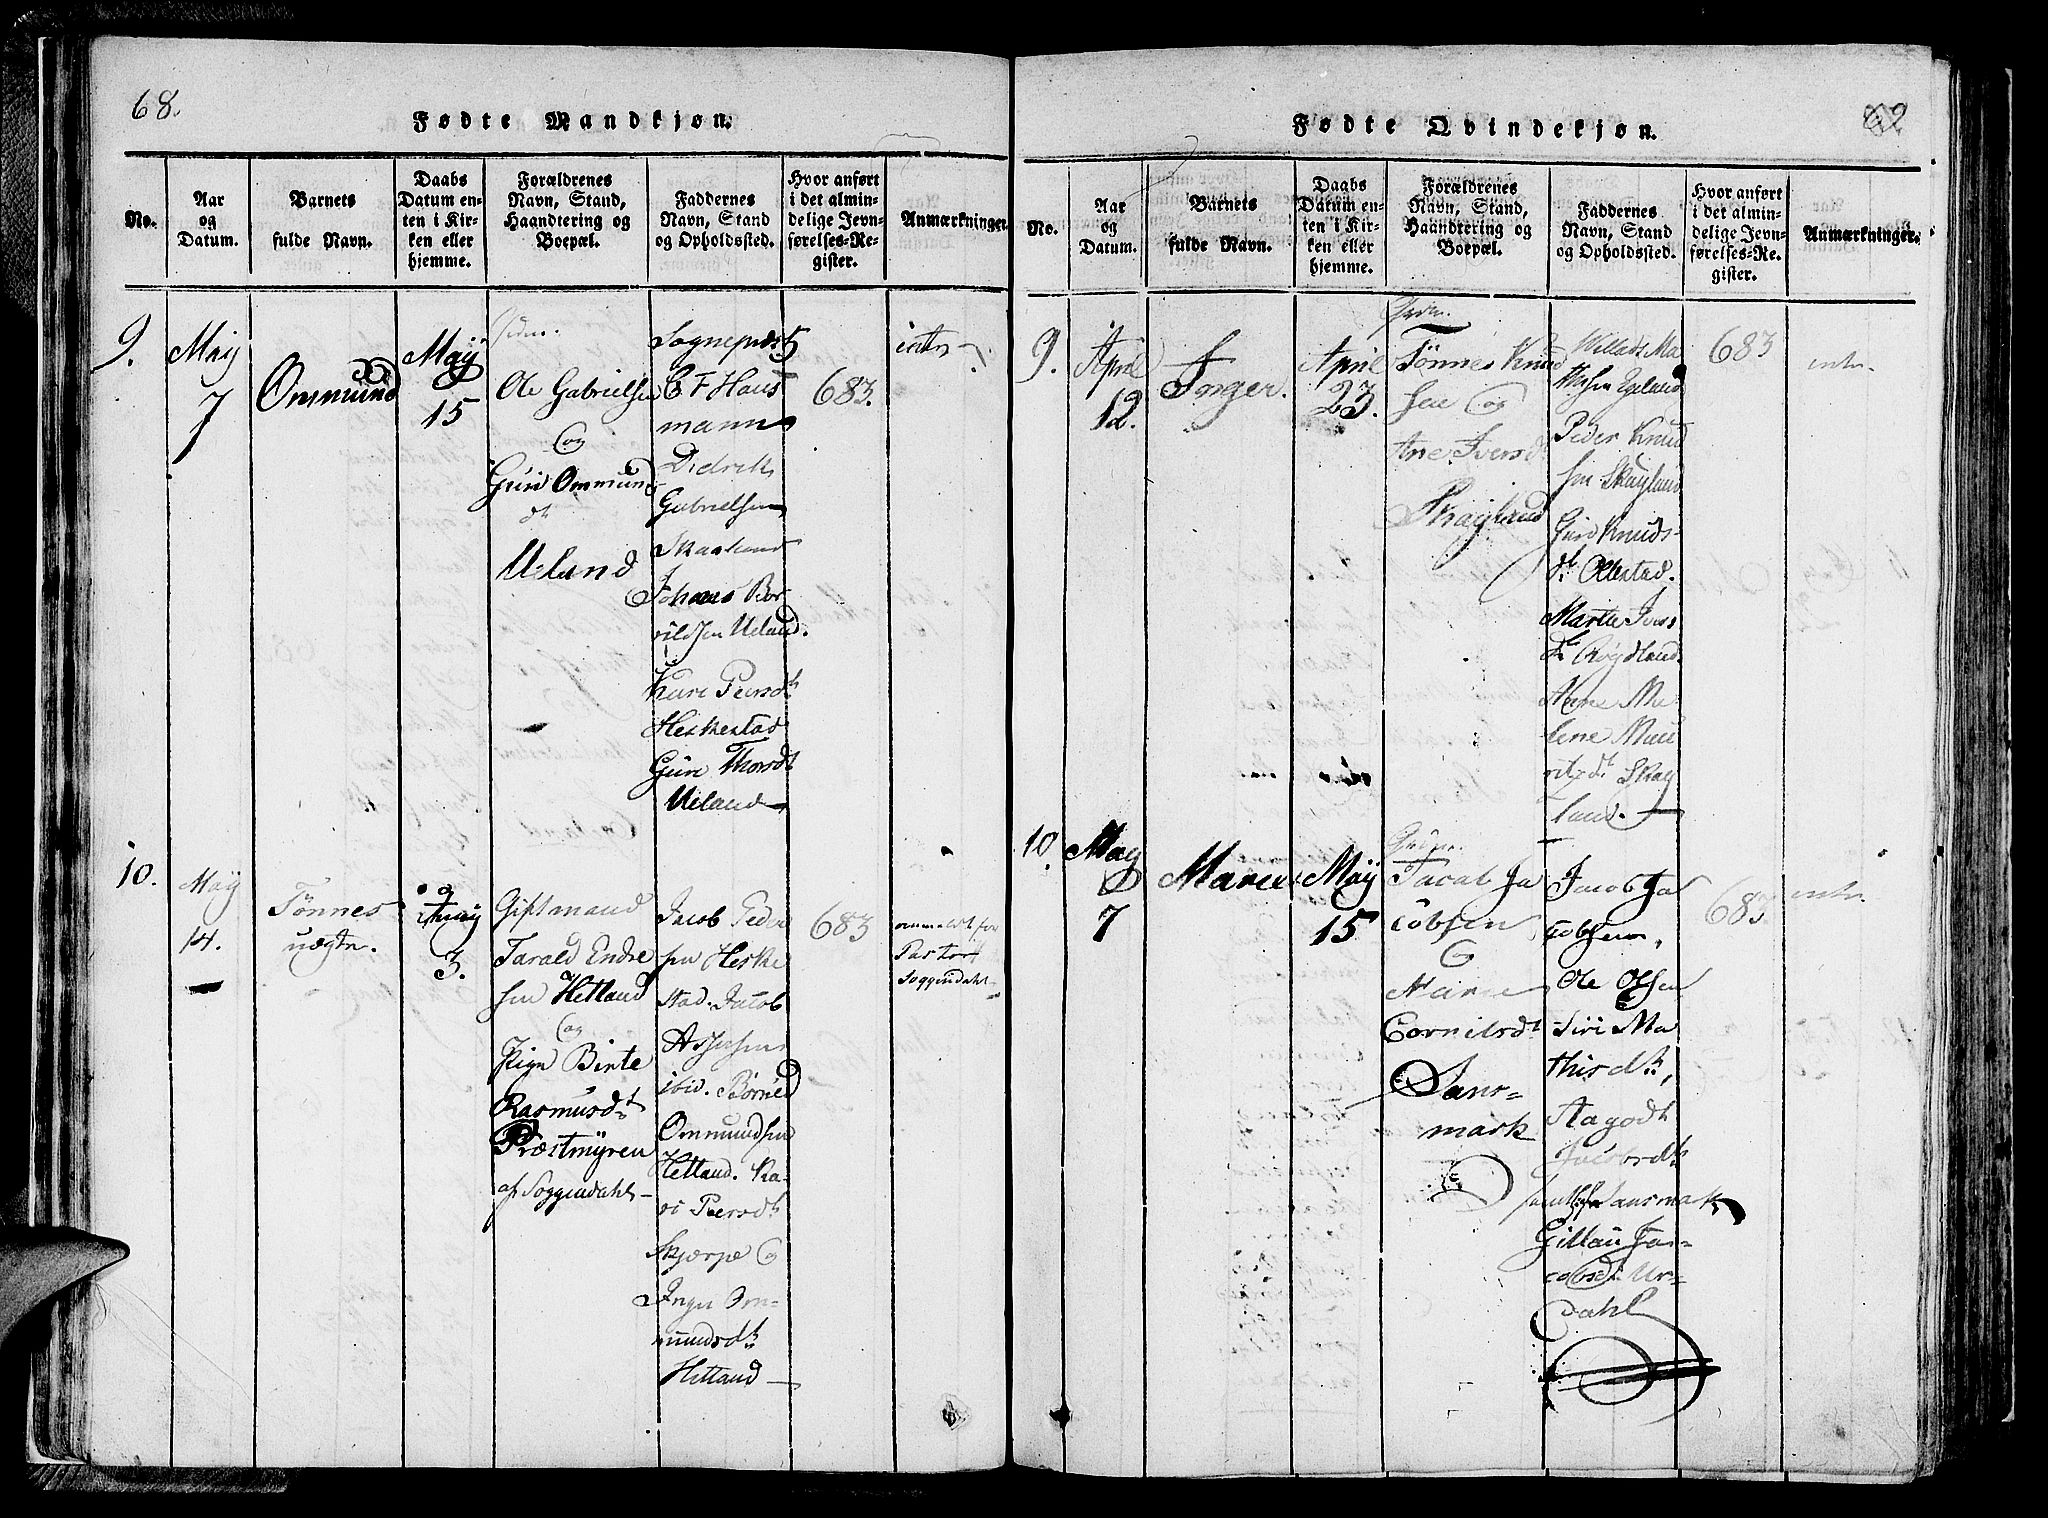 68.
Fødte Mandkjøn.
No.
Aar
og
Datum.
Barnets
fulde Navn.
Daabs
Datum en-
ten i Kir-
ken eller
hjemme.
Forældrenes
Navn, Stand,
Haandtering og
Boepæl.
Faddernes
Navn, Stand
og Opholdssted.
Hvor anført
i det almin-
delige Jevn-
førelses-Re-
gister.
Anmærkninger.
9.
May
7
Ommund
May
15
Ole Gabrielsen
og
Guri Ommund
dt
Ueland
Sognepræst
C F Haus
mann
Didrik
Gabrielsen
Skaaland
Johanes Bor-
rildsen Ueland.
Kari Peersdt
Heskestad
Guri Thorsdt
Ueland
683.
intr
10.
May
14.
Tønnes
uægte.
3.
Giftmand
Tarald Endre
sen Hetland
og
Pige Birte
Rasmusdt
Præstmyren
af Soggendahl
Jacob Peder
sen Heske
stad. Jacob
Assersen
ibid. Børild
Ommundsen
Hetland. Ka-
ri Peersdt
Skjerpe og
Inger Om-
mundsdt
Hetland
683
anmeldt for
Pastor
Soggendahl
69
Fødte Qvindekjøn.
No.
Aar
og
Datum.
Barnets
fulde Navn.
Daabs
Datum en-
ten i Kir-
ken eller
hjemme.
Forældrenes
Navn, Stand,
Haandtering og
Boepæl.
Faddernes
Navn, Stand
og Opholdssted.
Hvor anført
i det almin-
delige Jevn-
førelses-Re-
gister.
Anmærkninger.
9.
April
12.
Inger.
April
23.
Tønnes Knud
sen og
Ane Iversdt
Skayland
Willads Ma
thisen Egeland
Peder Knud
sen Skayland
Guri Knuds-
dt. Ollestad.
Marthe Ivers
dt Røydland.
Anne Ma
lene Mau
ritzdt Skay
land.
683
intr.
10.
May
7
Maren
May
15
Jacob Ja
cobsen
og
Maren
Cornilsdt
Sans-
mark
Jacob Ja
cobsen,
Ole Olsen
Siri Ma
thisdtr,
Aagodt
Jacobsdt
samtl. fra Sansmark,
Gillau Ja-
cobsdt Ur-
dahl
683
intr.